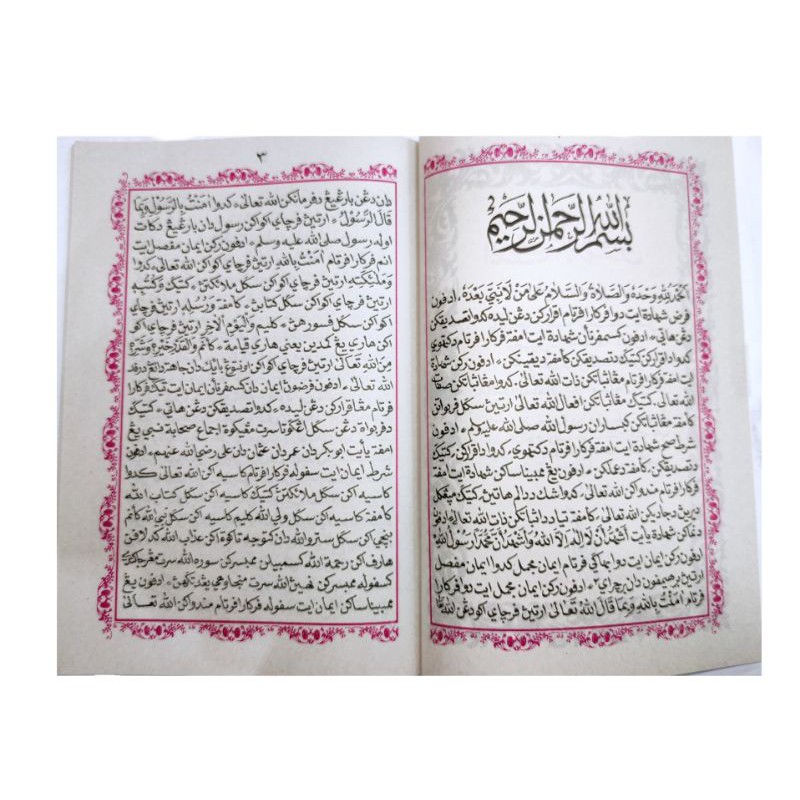 بسم الله الرحمن الرحيم
اَلْحَمْدُ لِلّٰهِ وَحْدَهُ وَالصَّلَاةُ وَالسَّلَامُ عَلَى مَنْ لَا نَبِيَّ بَعْدَهُ ، ادفون
فرض شهادة ايت دوا فركارا فرتام اقراركن دڠن ليده كدوا تصديقكن
دڠن هاتي ، ادفون كسمفرنأن شهادة ايت امفة فركارا فرتام دكتهوي
كدوا اقراركن كتيڬ دتصديقكن كأمفة ديقينكن ، ادفون ركن شهادة
ايت امفة فركارا فرتام مڠاثباتكن ذات الله تعالى كدوا مڠاثباتكن صفات
الله تعالى كتيڬ مڠاثباتكن افعال الله تعالى ارتين سڬل فربواتن
كأمفة مڠاثباتكن كبناران رسول الله صلى الله عليه وسلم ، ادفون
شرط صح شهادة ايت امفة فركارا فرتام دكتهوي كدوا داقراركن كتيڬ
دتصديقكن كأمفة ، ادفون يڠ ممبيناساكن شهادة ايت امفة
فركارا فرتام مندوكن الله تعالى كدوا شك ددالم هاتين كتيڬ
ديرين دجاديكن الله تعالى كأمفة تياد داثباتكن ذات الله تعالى ادفون
شهادة يأيت اَشْهَدُ اَنْ لَا اِلٰهَ اِلَّا اللهُ وَاَشْهَدُ اَنَّ مُحَمَّدًا رَسُولُ اللهِ
ادفون ركن ايمان ايت دوا فرتام ايمان مجمل كدوا ايمان مفصل
ارتين ، ادفون ركن ايمان مجمل ايت دوا فركارا
فرتام اٰمَنْتُ بِاللهِ وَبِمَا قَالَ اللهُ تَعَالَى ارتين فرچاي اكو دڠن الله
٣
دان دڠن بارڠيڠ دفرمانكن الله تعالى كدوا اٰمَنْتُ بِالرَّسُولِ وَبِمَا
قَالَ الرَّسُولُ ارتين فرچاي اكوكن رسول دان بارڠيڠ دكات
اوله رسول صلى الله عليه وسلم ، ادفون ركن ايمان مفصل ايت
انم فركارا فرتام اٰمَنْتُ بِاللهِ ارتين فرچاي اكوكن الله تعالى كدوا
وَمَلٰئِكَتِهِ ارتين فرچاي اكوكن سڬل ملائكتن ، كتيڬ وَكُتُبِهِ
ارتين فرچاي اكوكن سڬل كتابن ، كأمفة وَرُسُلِهِ ارتين فرچاي
اكوكن سڬل فسوروهن ، كليم وَالْيَوْمِ الْاٰخِرِ ارتين فرچاي اكو
كن هاري يڠ كمدين يعني هاري قيامة ، كأنم وَالْقَدَرِ خَيْرِهِ وَشَرِّهِ
مِنَ اللهِ تَعَالَى ارتين فرچاي اكوكن اونتوڠ بايك دان جاهت درفد
الله تعالى ، ادفون فرضون ايمان دان كسمفرنأن ايمان ايت تيڬ فركارا
فرتام مڠاقراركن دڠن ليده ، كدوا تصديقكن دڠن هاتي ، كتيڬ
دفربواة دڠن سڬل اڠڬوتا سرت مڠيكوة اجماع صحابة نبي يڠ
امفة يأيت ابو بكر دان عمر دان عثمان دان علي رضي الله عنهم ، ادفون
شرط ايمان ايت سفوله فركارا فرتام كاسيه اكن الله تعالى كدوا
كاسيه اكن سڬل ملائكتن كتيڬ كاسيه اكن سڬل كتاب الله
كأمفة كاسيه اكن سڬل ولي الله كليم كاسيه اكن سڬل نبي الله كأنم
بنچي اكن سڬل سترو الله دان كتوجه تاكوة اكن عذاب الله كدلافن
هارف اكن رحمة الله كسمبيلن ممبسركن سوره الله
كسفوله ممبسركن تڬه الله سرت منجاوهي ، ادفون يڠ
ممبيناساكن ايمان ايت سفوله فركارا فرتام مندوكن الله تعالى